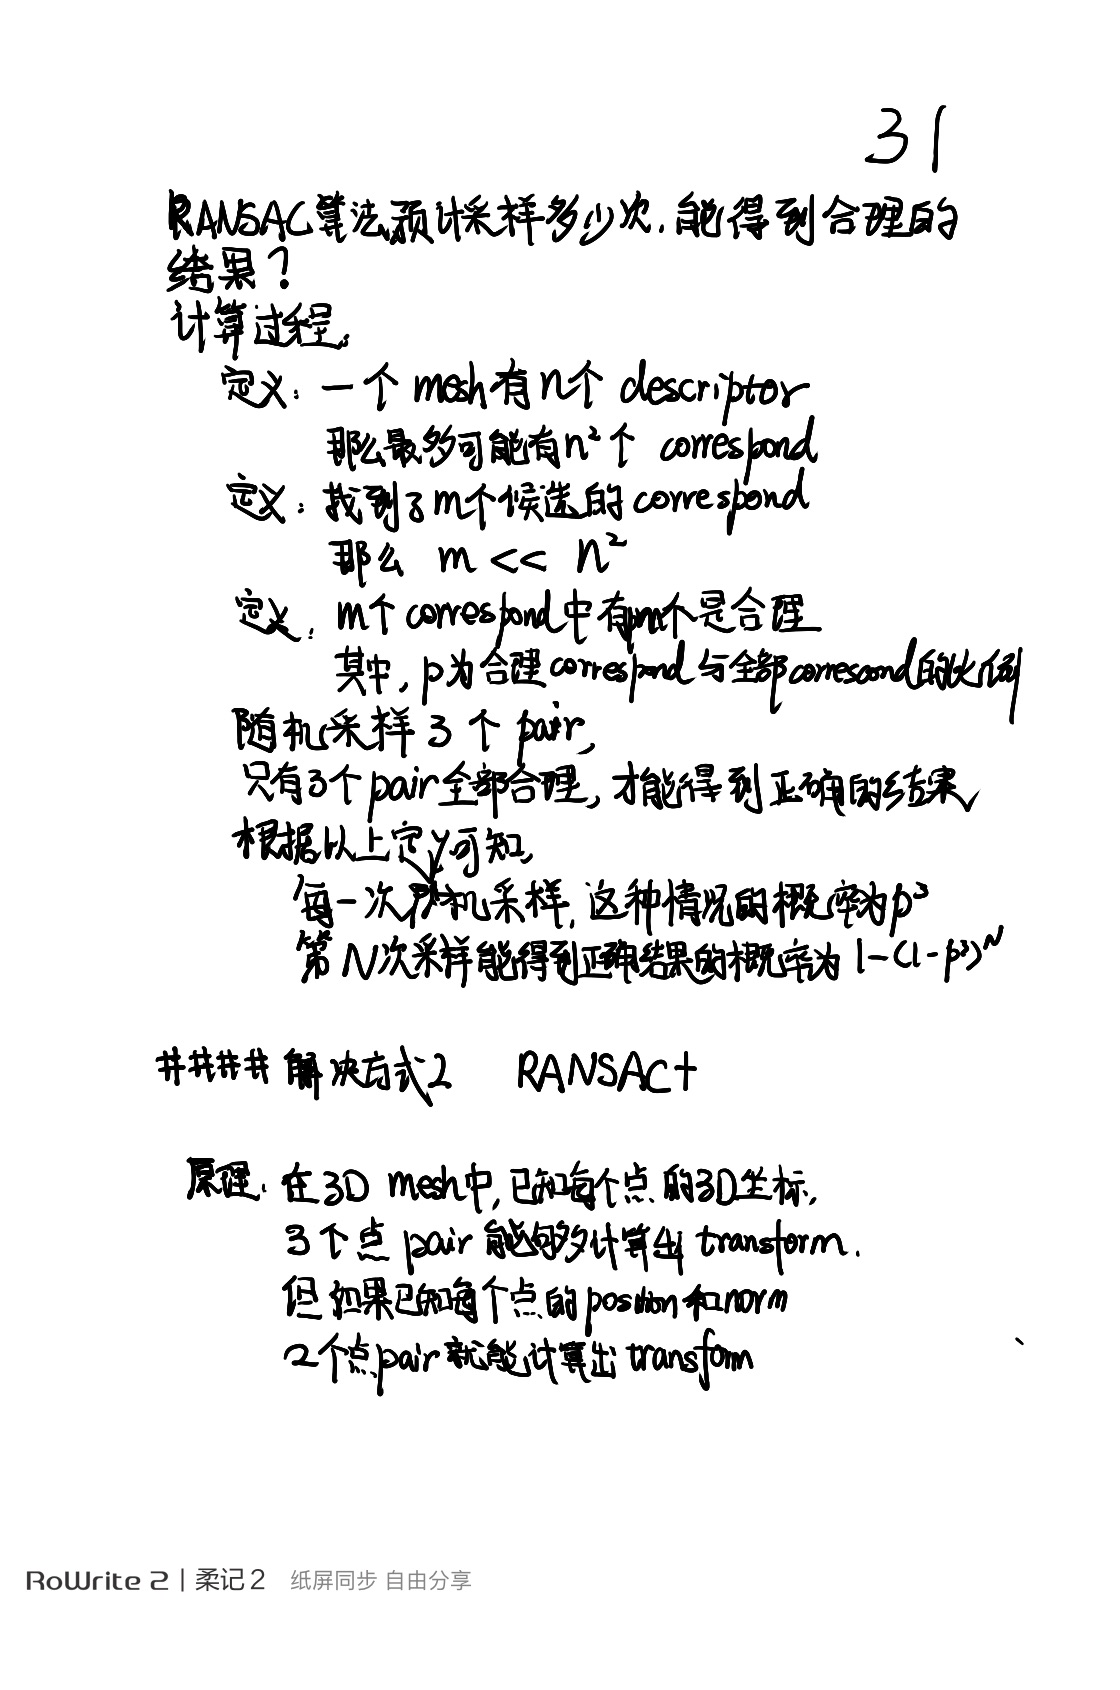 31
RANSAC算法预计采样多少次，能得到合理的
结果？
计算过程：
定义：一个mesh有n个descriptor
那么最多可能有n²个 correspond
定义：找到了m个候选的correspond
那么 m << n²
定义：m个correspond中有pm个是合理
其中，p为合理correspond与全部correspond的比例
随机采样3个pair，
只有3个pair全部合理，才能得到正确的结果
根据以上定义可知，
每一次随机采样，这种情况的概率为p³
第N次采样能得到正确结果的概率为1-(1-p³)^N
#### 解决方式2 RANSAC+
原理：在3D mesh中，已知每个点的3D坐标，
3个点pair能够多计算出transform.
但如果已知每个点的position和norm
2个点pair就能计算出transform
RoWrite 2 | 柔记2 纸屏同步 自由分享